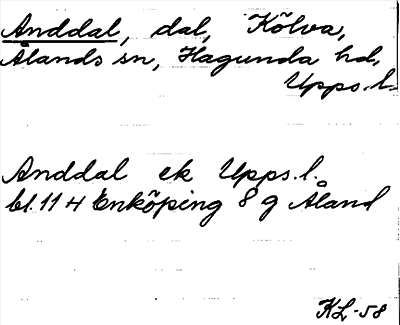 Anddal, dal, Kölva,
Ålands sn, Hagunda hd,
Upps.l.
Anddal ek Upps.l.
bl. 114 Enköping 8 g Åland
KL-58